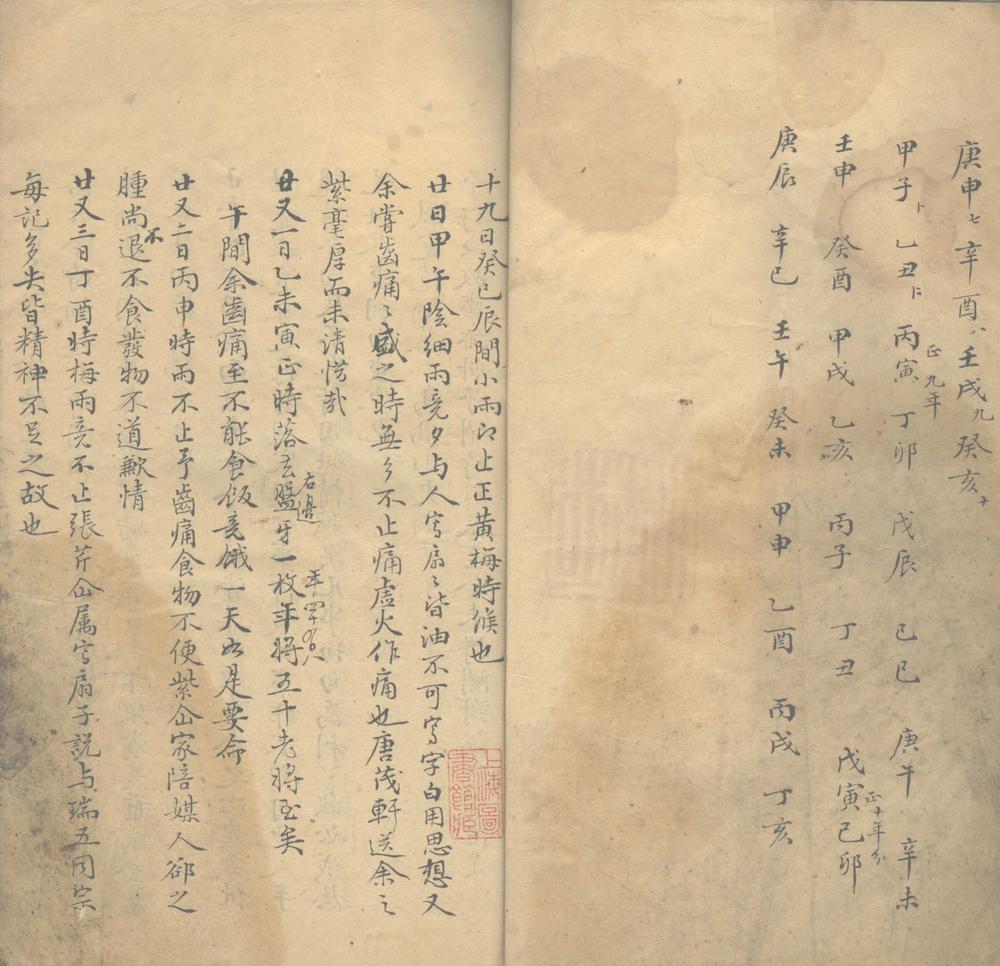 庚申七 辛酉八 壬戌九 癸亥十
甲子卜 乙丑卜 丙寅 丁卯 戊辰 己巳 庚午 辛未
正九年
壬申 癸酉 甲戌 乙亥 丙子 丁丑 戊寅 己卯
正十年分
庚辰 辛巳 壬午 癸未 甲申 乙酉 丙戌 丁亥
十九日癸巳辰間小雨即止正黃梅時候也
廿日甲午陰細雨竟夕与人寫扇〻皆油不可寫字白用思想又
余嘗齒痛〻盛之時無多不止痛虛火作痛也唐茂軒送余之
紫毫厚而未清惜哉
廿又一日乙未寅正時落去右邊盤牙一枚年將五十老將至矣
年四十八
午間余齒痛至不能食飯竟餓一天如是要命
廿又二日丙申時雨不止予齒痛食物不便紫仚家陪媒人郤之
腫尚不退不食發物不道歉情
廿又三日丁酉時梅雨竟不止張芹仚属寫扇子説与瑞五同宗
每記多失皆精神不足之故也
上海圖
書館藏